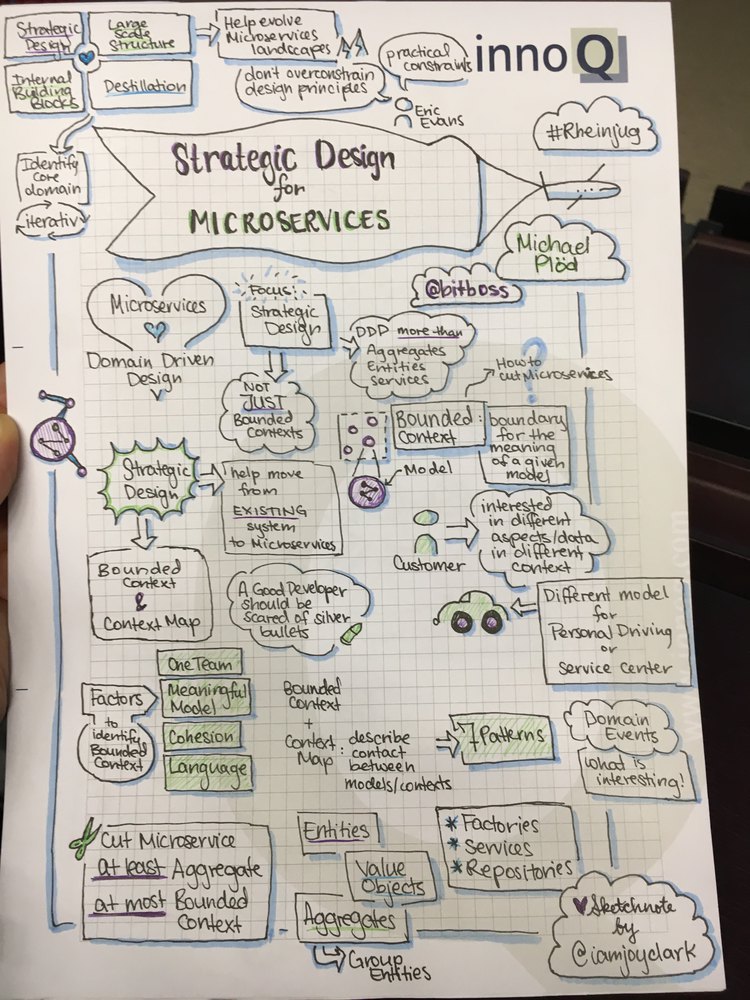 Strategic
Design
Large
Scale
Structure
Internal
Building
Blocks
Destillation
Help evolve
Microservices
landscapes
don't overconstrain
design principles
practical
constraints
Eric
Evans
innoQ
#Rheinjug
Identify
core
domain
iterativ
Strategic Design
for
MICROSERVICES
Michael
Plöd
@bitboss
Microservices
Domain Driven
Design
Focus:
Strategic
Design
NOT
JUST
Bounded
Contexts
DDD more than
Aggregates
Entities
Services
How to
cut Microservices
?
Bounded :
Context
boundary
for the
meaning
of a given
model
Model
Strategic
Design
help move
from
EXISTING
system
to Microservices
Customer
interested
in different
aspects/data
in different
context
Bounded
Context
&
Context Map
A Good Developer
should be
scared of silver
bullets
Different model
for
Personal Driving
or
Service Center
Factors
to
identify
Bounded
Context
One Team
Meaningful
Model
Cohesion
Language
Bounded
Context
+
Context
Map
: describe
contact
between
models/contexts
7 Patterns
Domain
Events
what is
interesting!
Cut Microservice
at least Aggregate
at most Bounded
Context
Entities
Value
Objects
Aggregates
Group
Entities
* Factories
* Services
* Repositories
♥ Sketchnote
by
@iamjoyclark